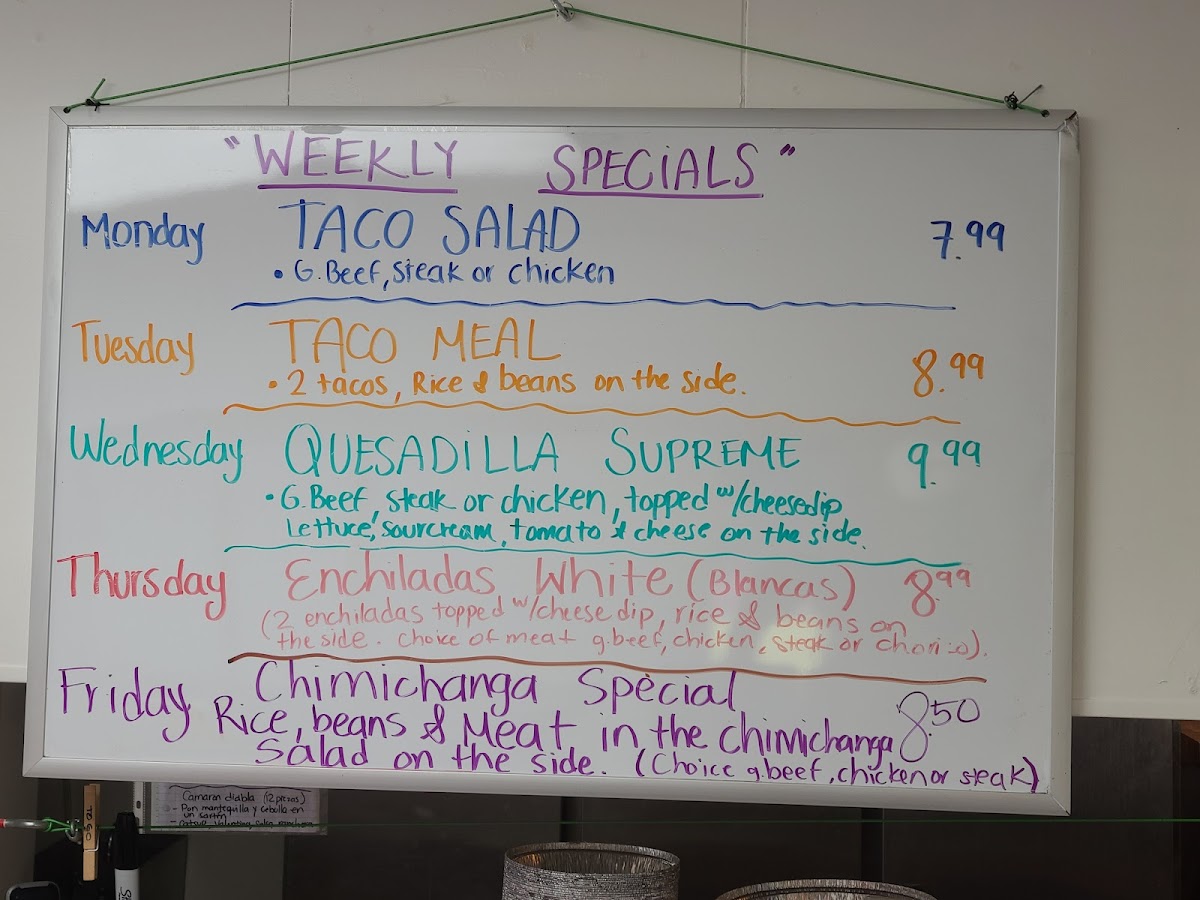 "WEEKLY SPECiALS"
Monday TACO SALAD 7.99
• G. Beef, steak or chicken
Tuesday TACO MEAL 8.99
• 2 tacos, Rice & beans on the side.
Wednesday QUESADiLLA SUPREME 9.99
• G. Beef, steak or chicken, topped w/cheesedip
Lettuce, sourcream, tomato & cheese on the side.
Thursday Enchiladas White (Blancas) 8.99
(2 enchiladas topped w/cheese dip, rice & beans on
the side. Choice of meat g.beef, chicken, steak or chorizo).
Friday Chimichanga Special 8.50
Rice, beans & Meat in the chimichanga
Salad on the side. (Choice g.beef, chicken or steak)
Camaron diabla (12 pieces)
- Pan mantequilla y cebolla en
un sartén